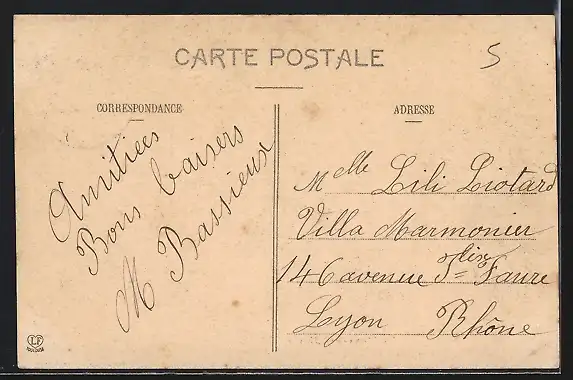 CARTE POSTALE
5
CORRESPONDANCE
Amitiées
Bons baisers
M Bassieux
ADRESSE
Melle Lili Liotard
Villa Marmonier
146 avenue Flix Faure
Lyon Rhône
LF